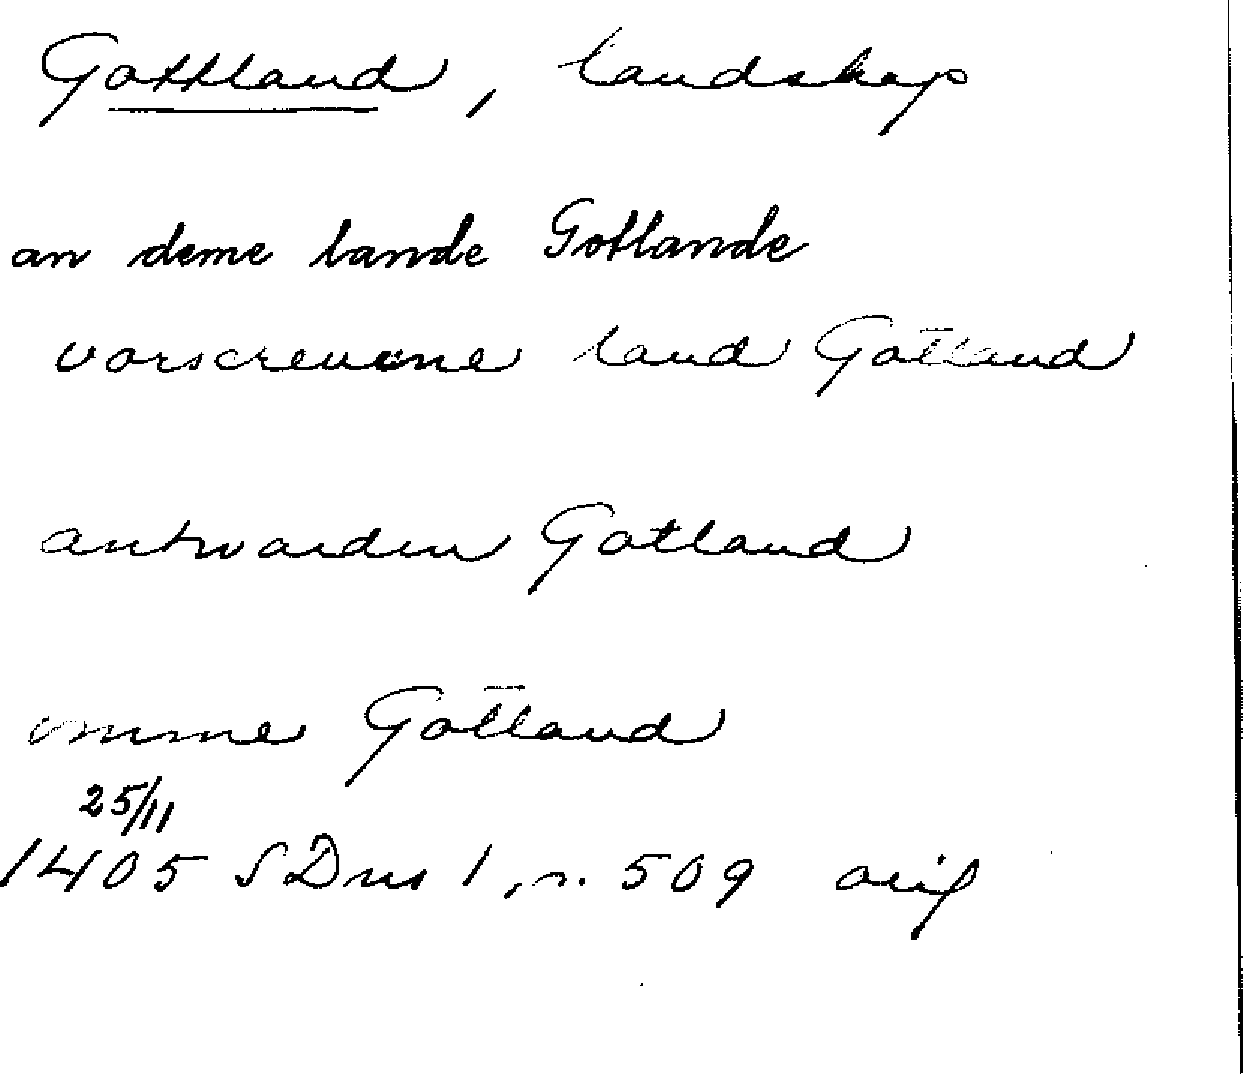 Gottland, landskap
an deme lande Gotlande
vorscreuene land Gotland
antwarden Gotland
vmme Gotland
25/11
1405 SDns 1, n. 509 orig